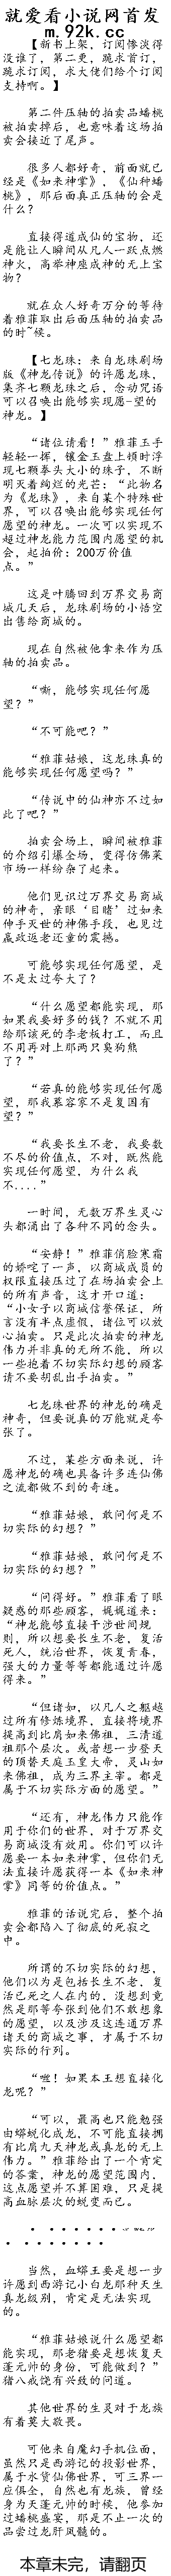 就爱看小说网首发
m.92k.cc
【新书上架，订阅惨淡得
没谁了，第二更，跪求首订，
跪求订阅，求大佬们给个订阅
支持啊。】
第二件压轴的拍卖品蟠桃
被拍卖掉后，也意味着这场拍
卖会接近了尾声。
很多人都好奇，前面就已
经是《如来神掌》，《仙种蟠
桃》，那后面真正压轴的会是
什么？
直接得道成仙的宝物，还
是能让人瞬间从凡人一跃点燃
神火，高举神座成神的无上宝
物？
就在众人好奇万分的等待
着雅菲取出后面压轴的拍卖品
的时~候。
【七龙珠：来自龙珠剧场
版《神龙传说》的许愿龙珠，
集齐七颗龙珠之后，念动咒语
可以召唤出能够实现愿-望的
神龙。】
“诸位请看！”雅菲玉手
轻轻一挥，镶金玉盘上顿时浮
现七颗拳头大小的珠子，不断
明灭着绚烂的光芒：“此物名
为《龙珠》，来自某个特殊世
界，可以召唤出能够实现任何
愿望的神龙。一次可以实现不
超过神龙能力范围内愿望的机
会，起拍价：200万价值
点。”
这是叶腾回到万界交易商
城几天后，龙珠剧场的小悟空
出售给商城的。
现在自然被他拿来作为压
轴的拍卖品。
“嘶，能够实现任何愿
望？”
“不可能吧？”
“雅菲姑娘，这龙珠真的
能够实现任何愿望吗？”
“传说中的仙神亦不过如
此了吧？”
拍卖会场上，瞬间被雅菲
的介绍引爆全场，变得仿佛菜
市场一样纷杂了起来。
他们见识过万界交易商城
的神奇，亲眼‘目睹’过如来
伸手灭世的神佛手段，也见过
嬴政返老还童的震撼。
可能够实现任何愿望，是
不是太过夸大了？
“什么愿望都能实现，那
如果我要好多的钱？不就不用
给那该死的李老板打工，而且
不用再对上那两只臭狗熊
了？”
“若真的能够实现任何愿
望，那我慕容家不是复国有
望？”
“我要长生不老，我要数
不尽的价值点，不对，既然能
实现任何愿望，为什么我
不....”
一时间，无数万界生灵心
头都涌出了各种不同的念头。
“安静！”雅菲俏脸寒霜
的娇咤了一声，以商城成员的
权限直接压过了在场拍卖会上
的所有声音，这才开口道：
“小女子以商城信誉保证，所
言没有半点虚假，诸位可以放
心拍卖。只是此次拍卖的神龙
伟力并非真的无所不能，所以
一些抱着不切实际幻想的顾客
请不要胡乱出手拍卖。”
七龙珠世界的神龙的确是
神奇，但要说真的万能就是夸
张了。
不过，某些方面来说，许
愿神龙的确也具备许多连仙佛
之流都做不到的奇迹。
“雅菲姑娘，敢问何是不
切实际的幻想？”
“雅菲姑娘，敢问何是不
切实际的幻想？”
“问得好。”雅菲看了眼
疑惑的那些顾客，娓娓道来：
“神龙能够直接干涉世间规
则，所以想要长生不老，复活
死人，统治世界，恢复青春，
强大的力量等等都能通过许愿
得来。”
“但诸如，以凡人之躯越
过所有修炼境界，直接将境界
提高到比肩如来佛祖，三清道
祖那个层次。或者想一步登天
的顶替天庭玉皇大帝，灵山如
来佛祖，成为三界主宰。都是
属于不切实际方面的愿望。”
“还有，神龙伟力只能作
用于你们的世界，对于万界交
易商城没有效用。你们可以许
愿要一本如来神掌，但你们无
法直接许愿获得一本《如来神
掌》同等的价值点。”
雅菲的话说完后，整个拍
卖会都陷入了彻底的死寂之
中。
所谓的不切实际的幻想，
他们以为是包括长生不老，复
活已死之人在内的，没想到竟
然是那等夸张到他们不敢想象
的愿望，以及涉及这连通万界
诸天的商城之事，才属于不切
实际的行列。
“嗤！如果本王想直接化
龙呢？”
“可以，最高也只能勉强
由蟒蜕化成龙，不可能直接拥
有比肩九天神龙或真龙的无上
伟力。”雅菲给出了一个肯定
的答案，神龙的愿望范围内，
这点愿望并不算困难，只是提
高血脉层次的蜕变而已。
当然，血蟒王要是想一步
许愿到西游记小白龙那种天生
真龙级别，肯定是无法实现
的。
“雅菲姑娘说什么愿望都
能实现，那老猪要是想恢复天
蓬元帅的身份，可能做到？”
猪八戒饶有兴致的问道。
其他世界的生灵对于龙族
有着莫大敬畏。
可他来自魔幻手机位面，
虽然只是西游记的投影世界，
属于水货仙佛世界，可三界一
应俱全，自然也有龙族，曾经
身为天蓬元帅的时候，他参加
过蟠桃盛宴，那是不止一次的
品尝过龙肝凤髓的。
本章未完，请翻页